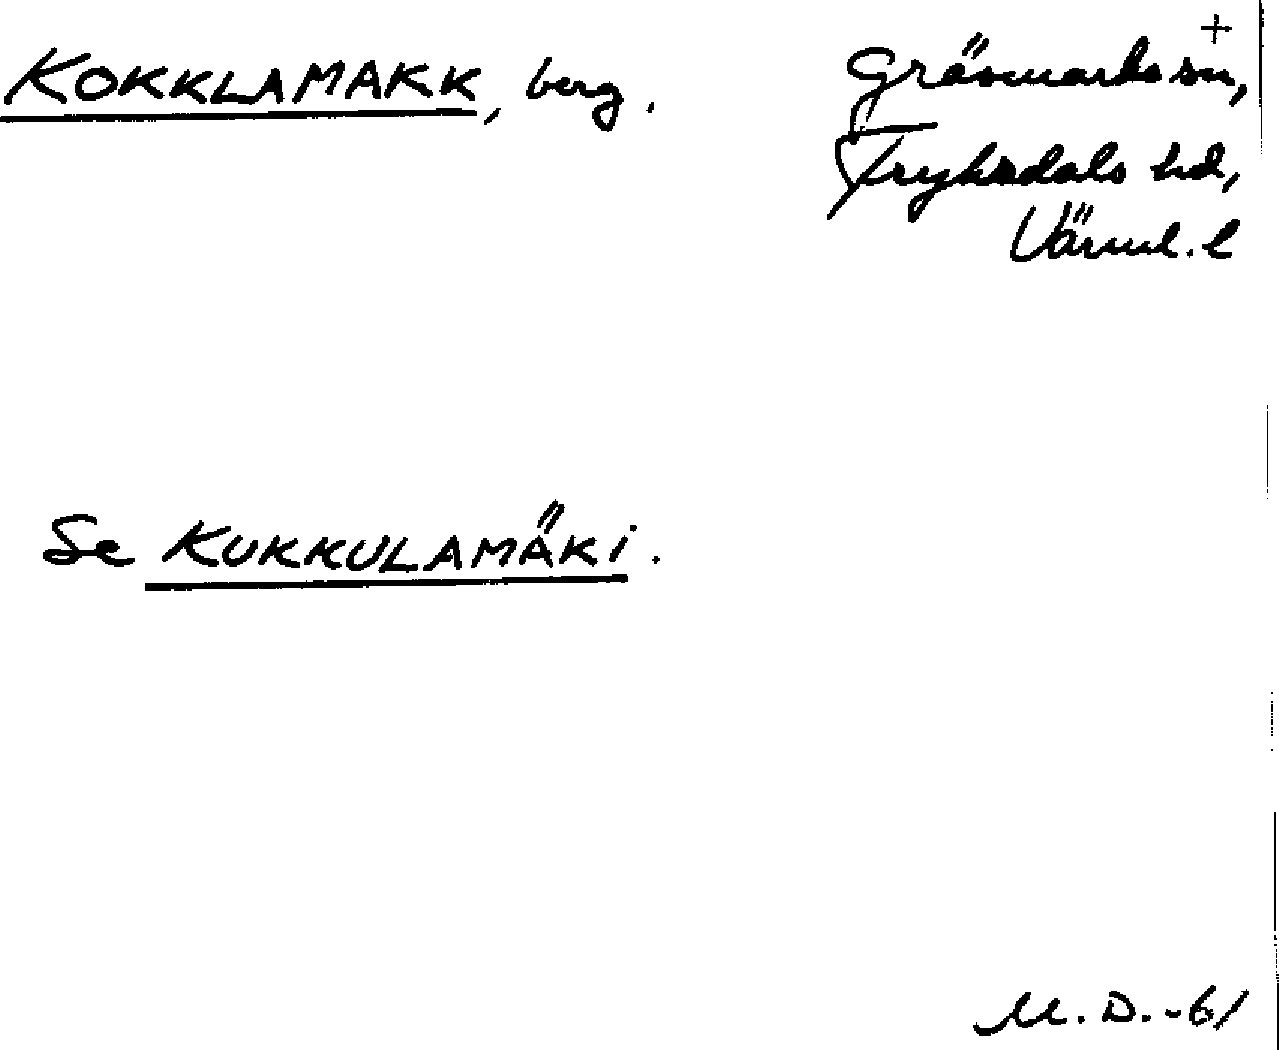 KOKKLAMAKK, berg.
+
Gräsmarks sn,
Fryksdals hd,
Värml. l
Se KUKKULAMÄKI.
M. D. -61